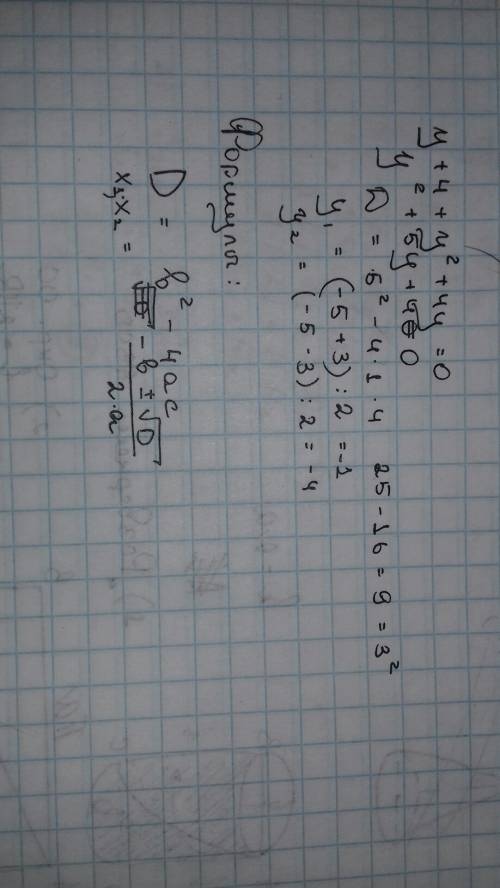 y + 4 + y² + 4y = 0
y² + 5y + 4 = 0
D = 5² - 4·1·4 25 - 16 = 9 = 3²
y₁ = (-5 + 3) : 2 = -1
y₂ = (-5 - 3) : 2 = -4
Формулы:
D = b² - 4ac
x₁;x₂ = -b ± √D / 2·a